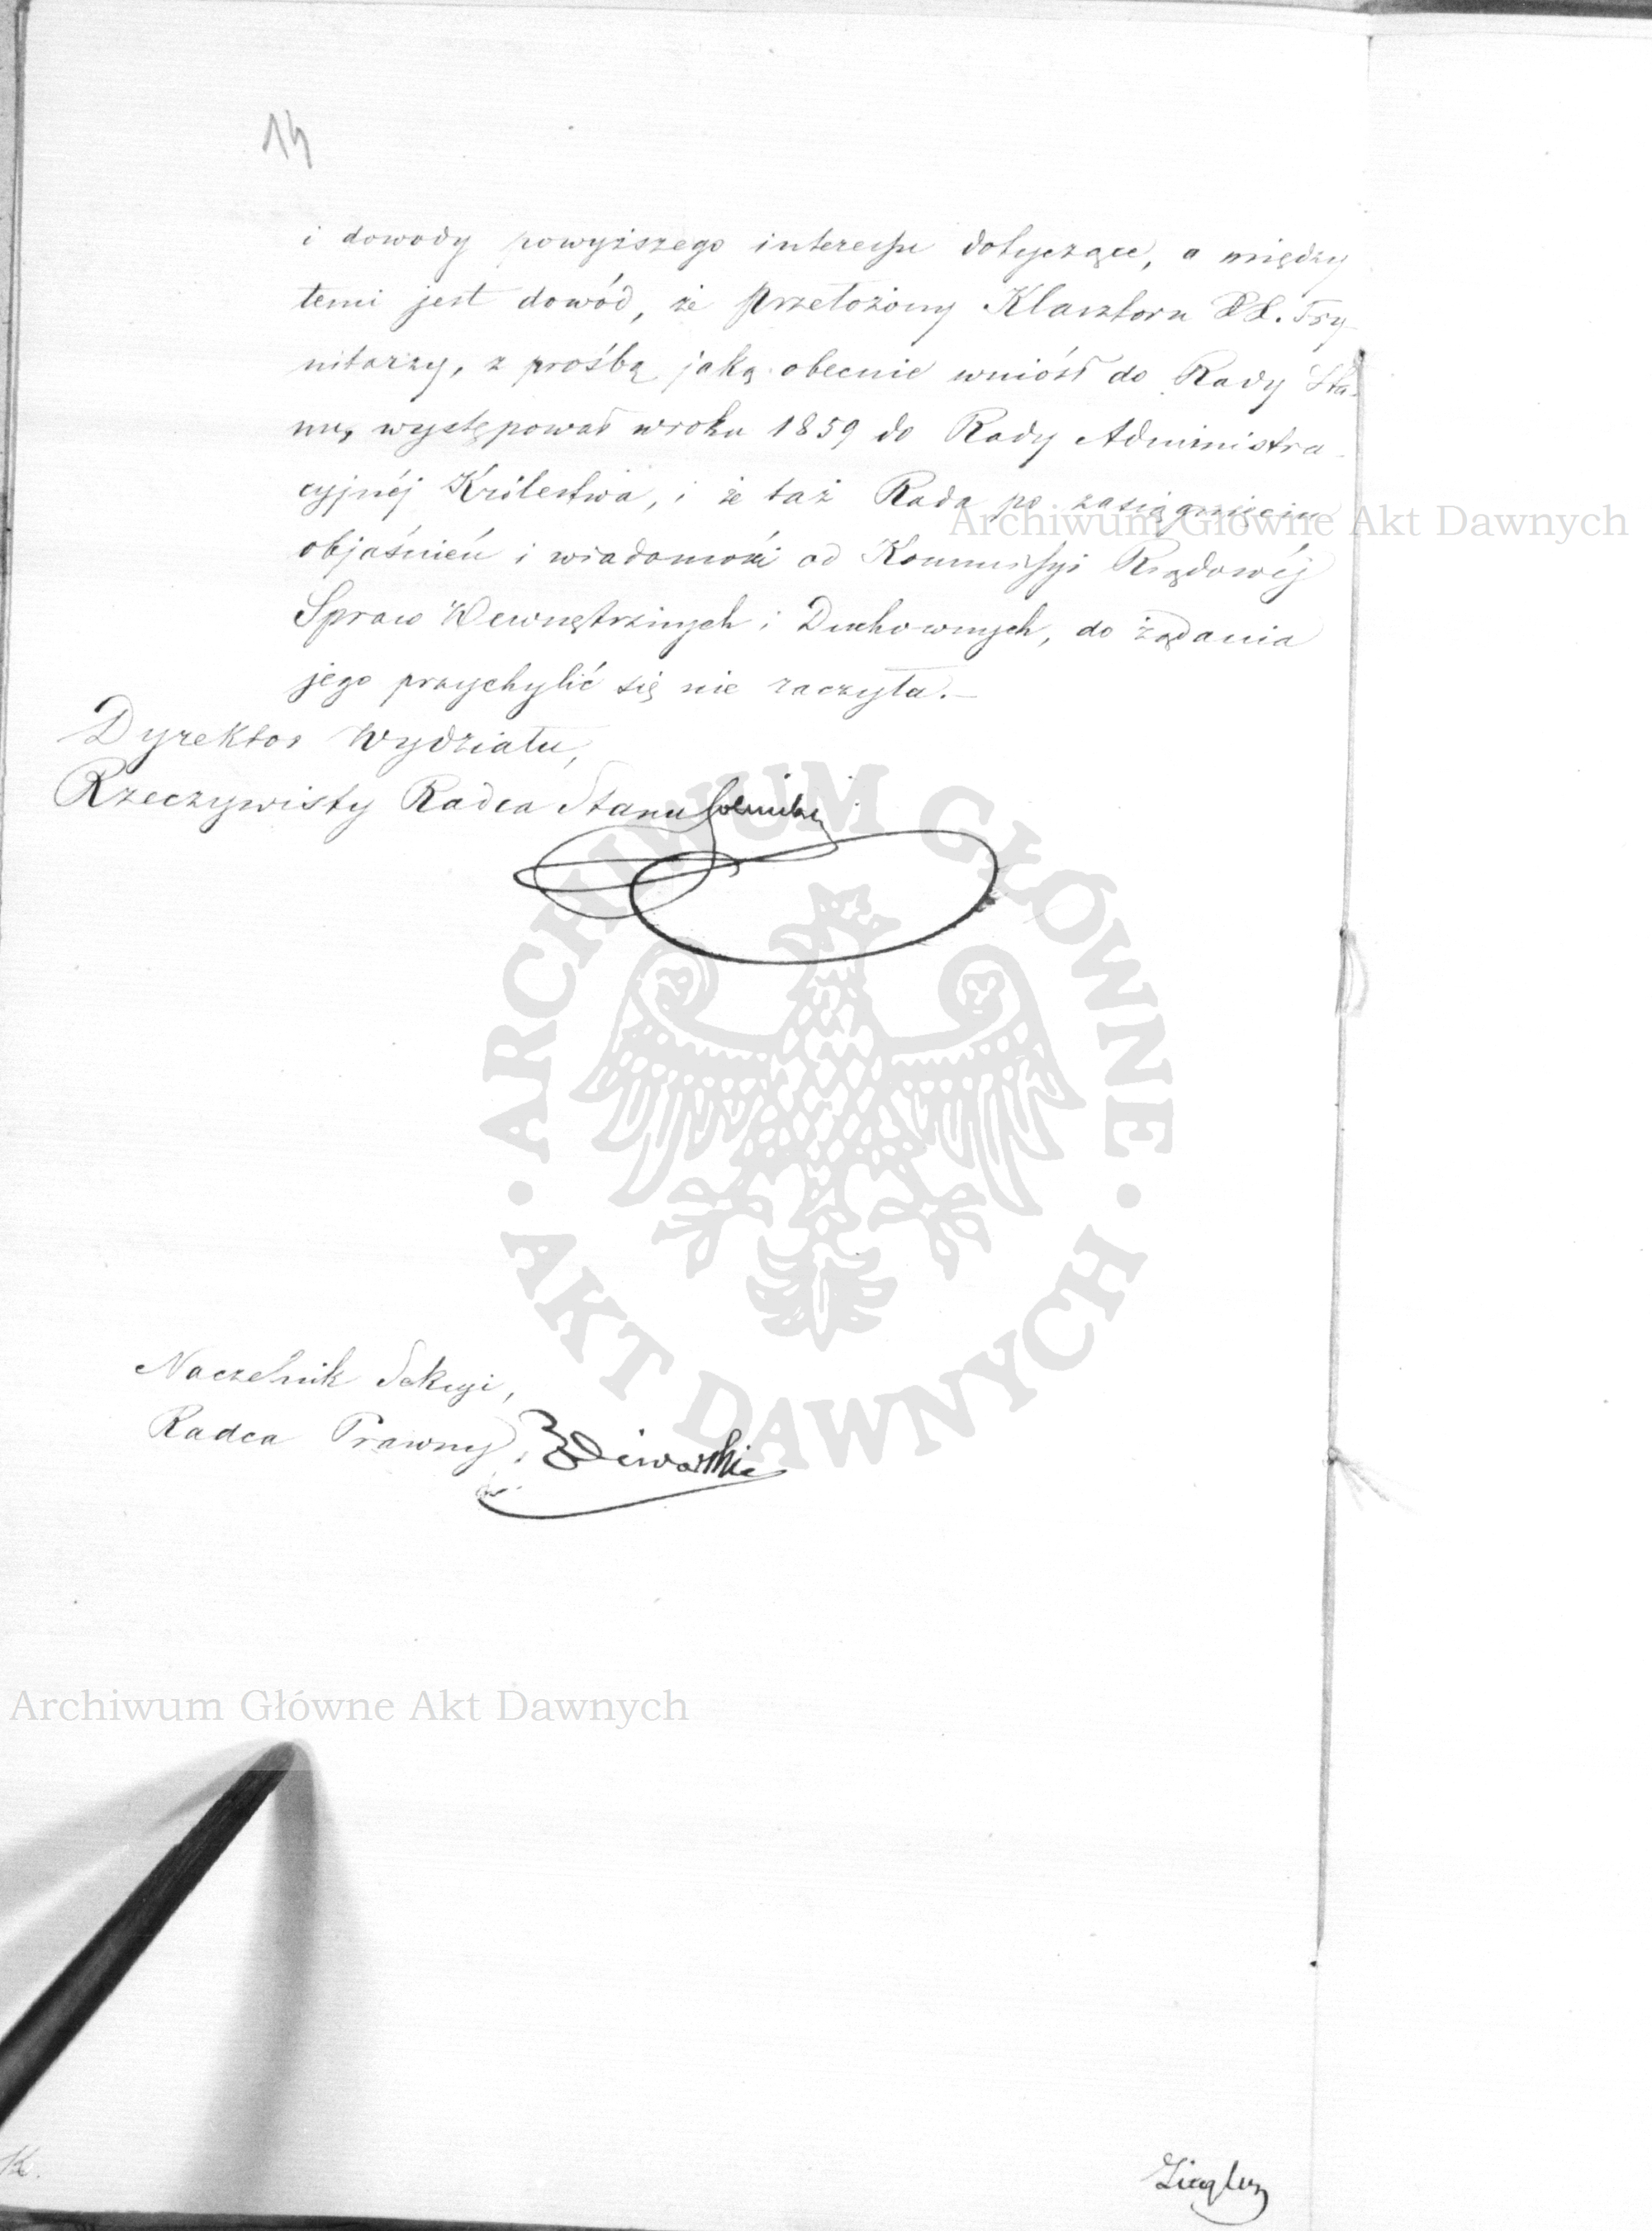 14
i dowody powyższego interessu dotyczące, a między
temi jest dowód, że Przełożony Klasztoru XX. Try
nitarzy, z prośbą jaką obecnie wniósł do Rady Sta-
nu, występował w roku 1859 do Rady Administra-
cyjnéj Królestwa, i że taż Rada po zasiągnięciu
Archiwum Główne Akt Dawnych
objaśnień i wiadomości od Kommissyi Rządowéj
Spraw Wewnętrznych i Duchownych, do żądania
jego przychylić się nie raczyła.—
Dyrektor Wydziału,
Rzeczywisty Radca Stanu
ARCHIWUM GŁÓWNE
AKT DAWNYCH
Naczelnik Sekcyi,
Radca Prawny,
Archiwum Główne Akt Dawnych
Ziegler